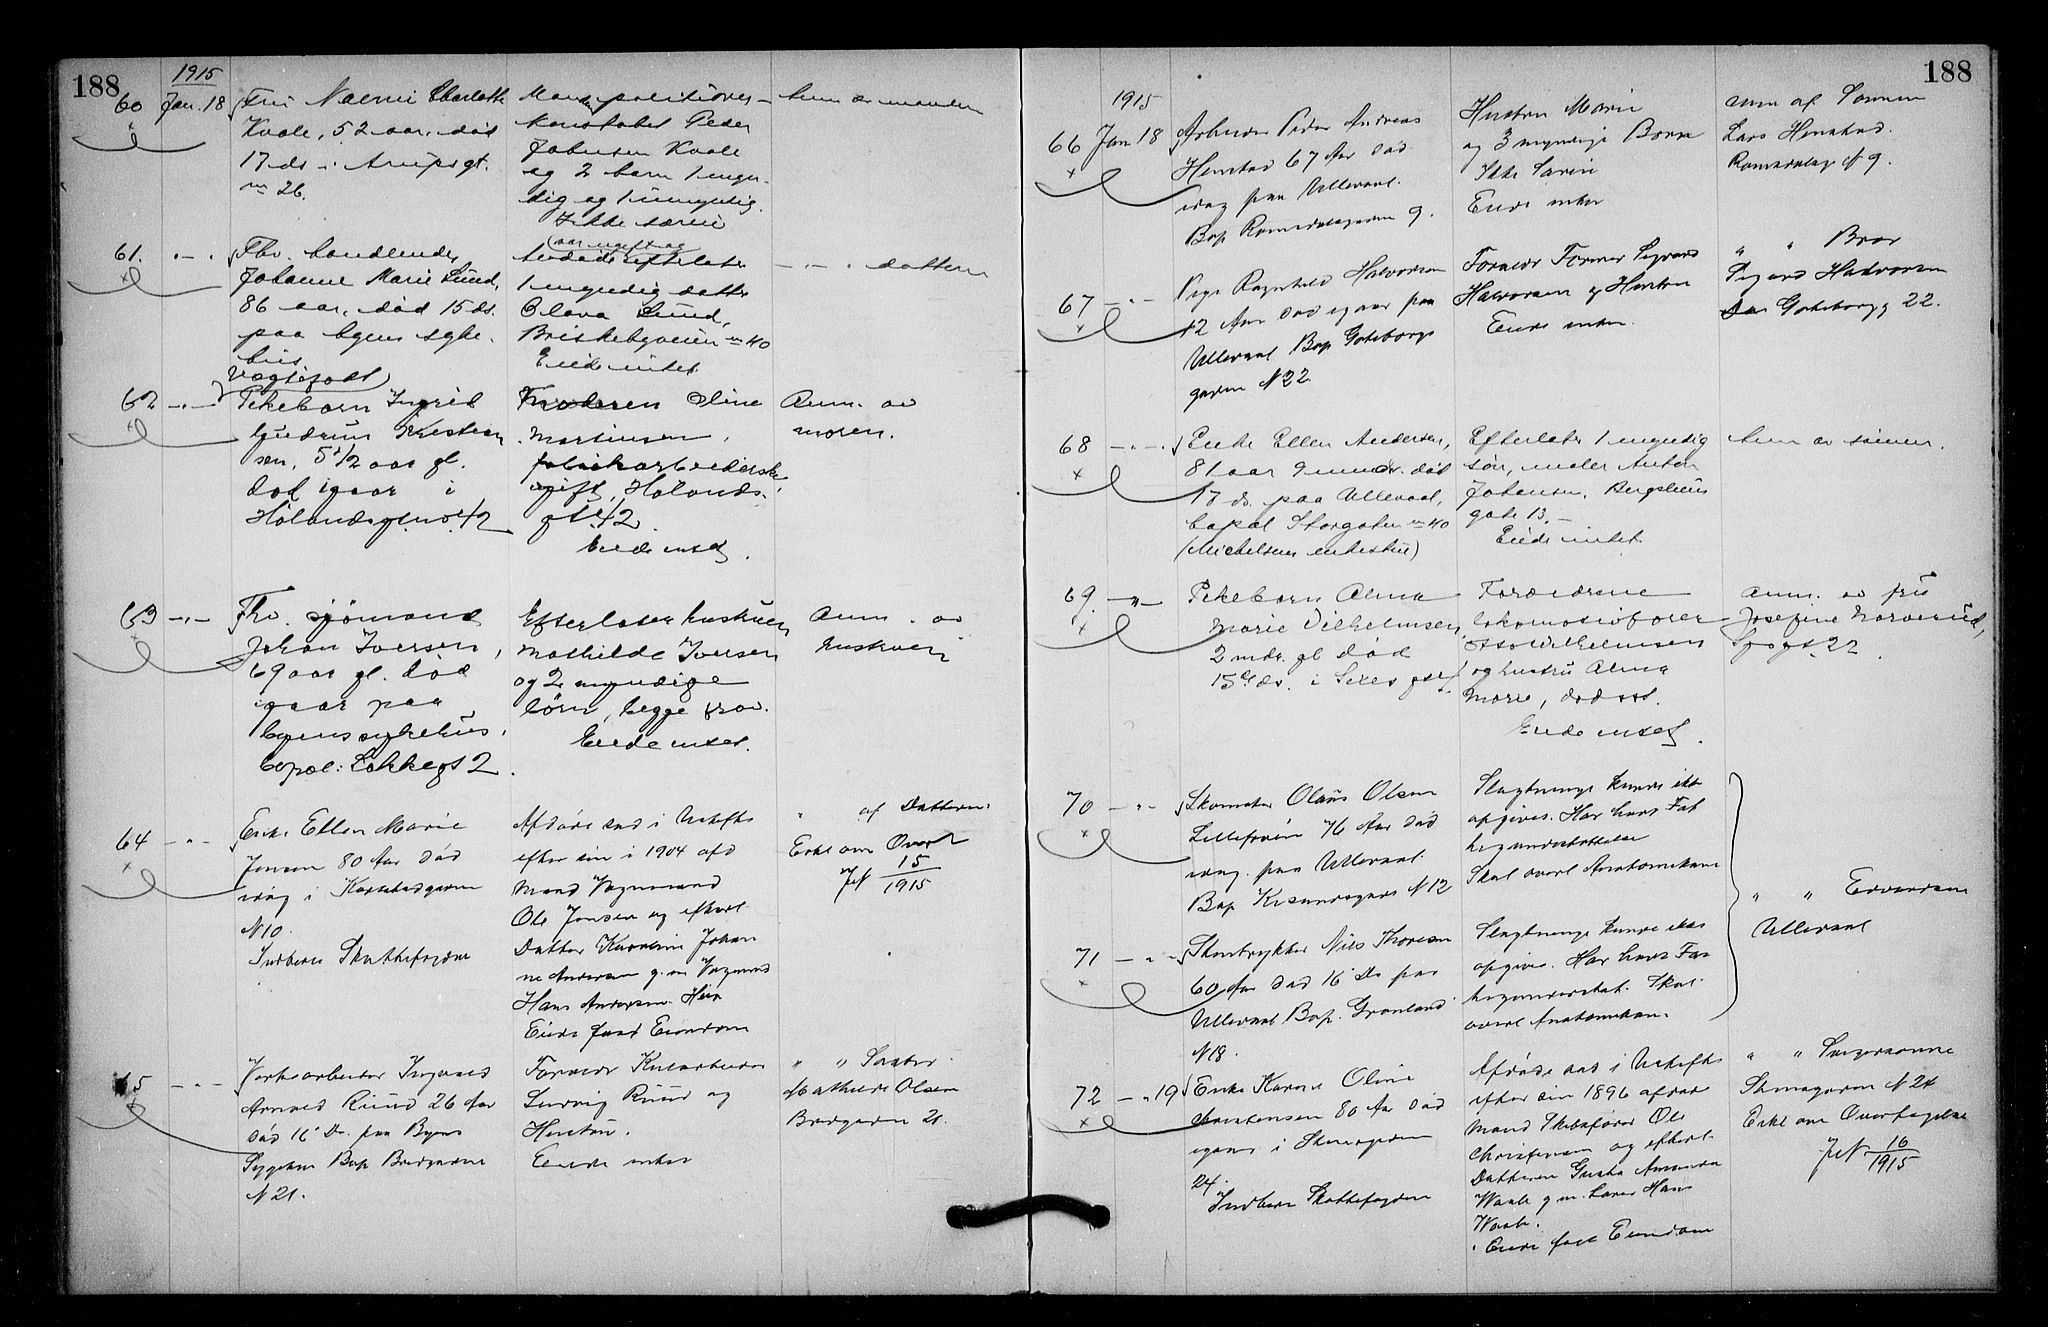 188
1915
60 Jan. 18 Fru Naemi Charlotte
Kvale, 52 aar, død
17 ds i Arupsgt.
nr 26.
Mand politiover-
konstabel Peder
Johnsen Kvale
og 2 barn 1 myn-
dig og 1 umyndig.
Ikke særeie
Anm. av manden
61. - " - Fhv. handlende
Johanne Marie Lund,
86 aar, død 15 ds.
paa byens syke-
hus
var ugift og
efterlater
1 myndig datter
Olava Lund,
Briskebyveien nr 40
Eiede intet.
- " - datteren
62 - " - Uegtefødt
Pikebarn Ingrid
Gudrun Kristian
sen, 5 1/2 aar gl.
død igaar i
Hølandsgt no 42
Moderen Oline
Martinsen,
fabrikarbeiderske
ugift, Hølands-
gt 42.
Eiede intet.
Anm. av
moren.
63 - " - Fhv. sjømand
Johan Iversen,
69 aar gl. død
igaar paa
byens sykehus,
bopæl: Løkkegt 2.
Efterlater hustruen
Mathilde Iversen
og 2 myndige
børn, begge frav.
Eiede intet.
Anm. av
hustruen
64 - " - Enke Ellen Marie
Jensen 80 Aar død
idag i Karlstadgaden
N 10.
Indberet Skattefogden
Afdøde sad i Uskifte
efter sin i 1904 afd
Mand Vognmand
Ole Jensen og efterl.
Datter Karoline Johan
ne Andersen g. m. Vognmand
Hans Andersen. Her
Eiede fast Eiendom
" af Datteren.
Erkl om Overt
JN 15/1915
65 - " - Verksarbeider Ingvald
Arnold Ruud 26 Aar
død 16 Ds. paa Byens
Sygehus Bop Bredgaden
N 21.
Forældre
Ludvig Ruud og
Hustru.
Eiede intet
" " Søster
Mathilde Olsen
Bredgaden 21.
188
1915
66 Jan 18 Arbeider Peder Andreas
Henstad 67 Aar død
idag paa Ullevaal.
Bop Romsdalsgaden 9.
Hustru Marie
og 3 myndige Børn
Ikke Særeie
Eiede intet
anm af Sønnen
Lars Henstad.
Romsdalsg N 9.
67 - " - Pige Ragnhild Halvorsen
12 Aar død igaar paa
Ullevaal Bop Gøteborg
gaden N 22.
Forældre Former Sigvard
Halvorsen og Hustru
Eiede intet.
" " Bror
Sigurd Halvorsen
Gøteborgg 22.
68 - " - Enke Ellen Andersen,
81 aar 9 mndr. død
17 ds. paa Ullevaal,
bopæl Storgaten nr 40
(Michelsens enkestue)
Efterlater 1 myndig
søn, maler Anton
Johansen, Bergsliens
gate 13. -
Eiede intet.
Anm av sønnen.
69. - " - Pikebarn Alma
Marie Vilhelmsen,
2 mdr. gl død
15 ds. i
Forældrene
lokomotivfører
Otto Vilhelmsen
og hustru Alma
Marie, død sst.
Eiede intet.
Anm. av fru
Josefine Narverud,
22.
70 - " - Skomaker Olaus Olsen
Lillefosen 76 Aar død
idag. paa Ullevaal.
Bop N 12
Slægtninge kunde ikke
opgives. Har havt Fat
tigunderstøttelse
Skal overl Anatomikam
71 - " - Stentrykker Nils Thoresen
60 Aar død 16 Ds paa
Ullevaal Bop. Grønland
N 18.
Slægtninge kunde ikke
opgives. Har havt Fat
tigunderstøt. Skal
overl Anatomikam.
" " Edvardsen
Ullevaal
72 - " 19 Enke Karen Oline
Christensen 80 Aar død
igaar i Stensgaden
24.
Indberet Skattefogden
Afdøde sad i Uskifte
efter sin 1896 afdøde
Mand Skibsfører Ole
Christensen og efterl.
Datteren Gusta Amanda
Waale g. m. Hans
Waale.
Eiede fast Eiendom
" " Svigersønnen
Stensgaden N 24
Erkl om Overtagelse
JN 16/1915